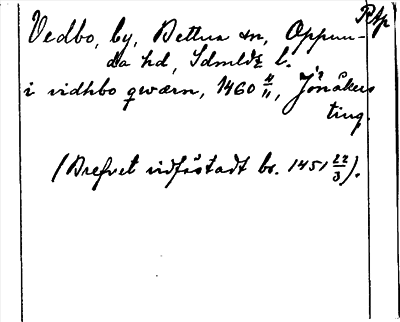 Rtp
Vedbo, by, Bettna sn, Oppun-
da hd, Sdmlds l.
i vidhbo qwærn, 1460 4/11, Jönåkers
ting.
(Brefvet vidfästadt br. 1451 22/3).